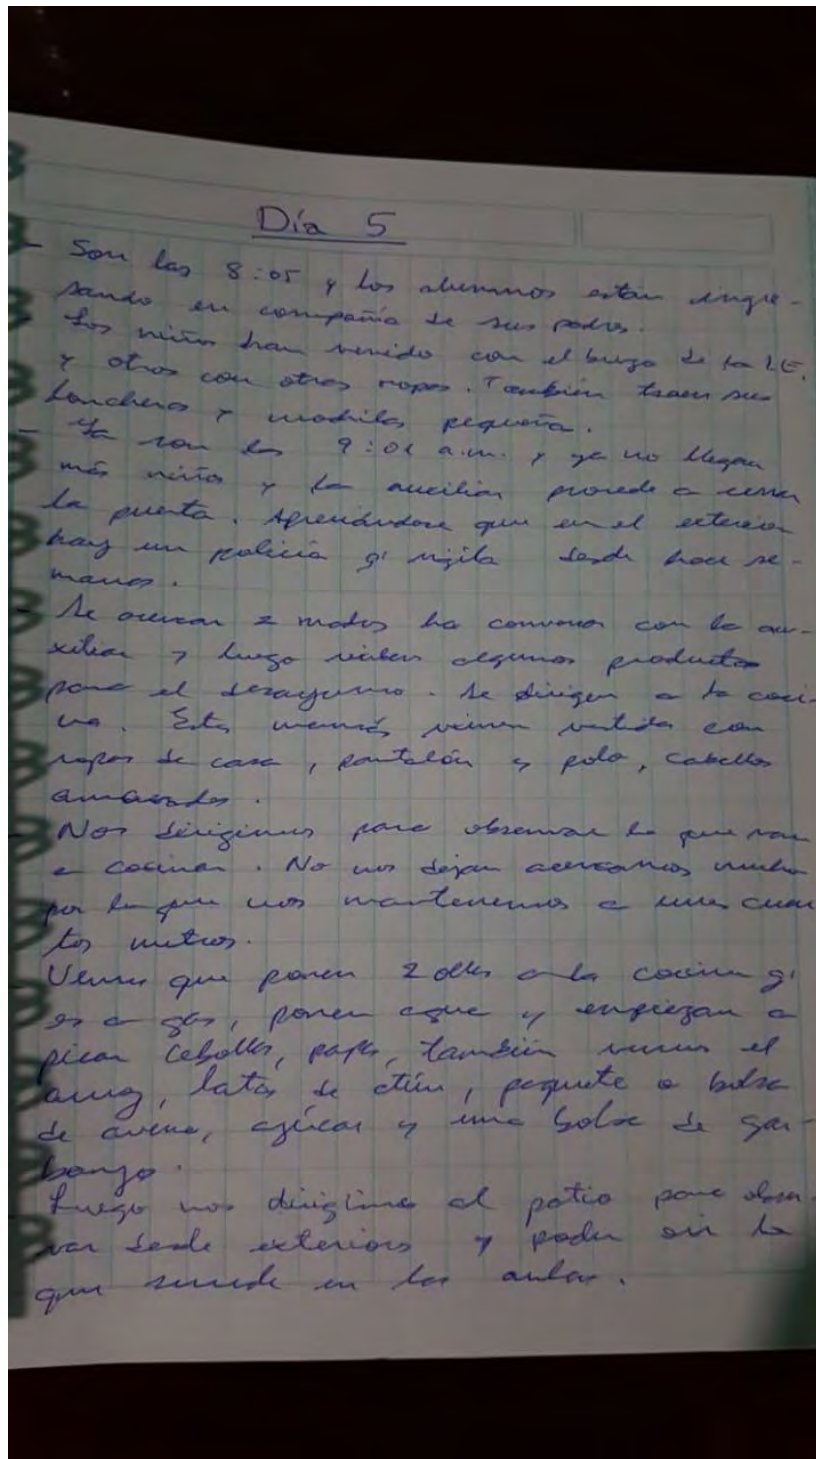 Día 5
- Son las 8:05 y los alumnos están ingre-
sando en compañía de sus padres.
Los niños han venido con el buzo de la I.E.
y otros con otras ropas. También traen sus
loncheras y mochilas pequeña.
- Ya son las 9:01 a.m. y ya no llegan
más niños y la auxiliar procede a cerrar
la puerta. Apreciándose que en el exterior
hay un policía q' vigila desde hace se-
manas.
- Se acercan 2 madres ha conversar con la au-
xiliar y luego reciben algunos productos
para el desayuno. Se dirigen a la coci-
na. Estas mamás vienen vestidas con
ropas de casa, pantalón y polo, cabellos
amarrados.
- Nos dirigimos para observar lo que van
a cocinar. No nos dejan acercarnos mucho
por lo que nos mantenemos a unos cuan
tos metros.
- Vemos que ponen 2 ollas a la cocina q'
es a gas, ponen agua y empiezan a
picar cebollas, papas, también vemos el
arroz, latas de atún, paquete o bolsa
de avena, azúcar y una bolsa de gar-
banzo.
Luego nos dirigimos al patio para obser
var desde exteriores y poder oir lo
que sucede en las aulas.